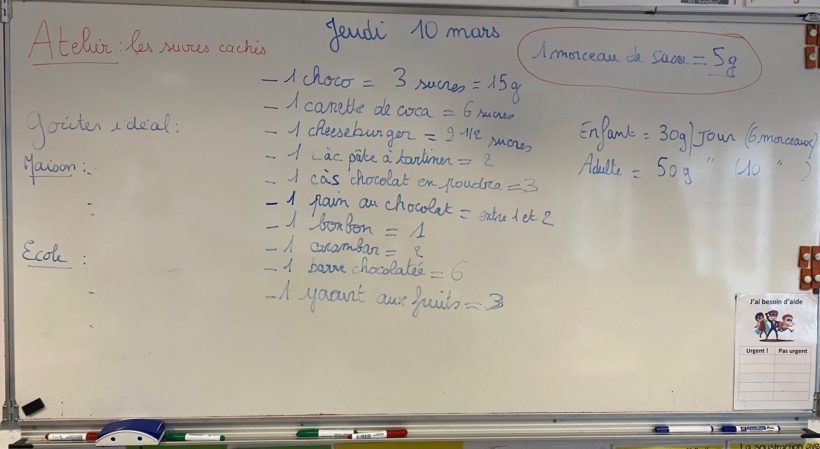 Jeudi 10 mars
Atelier : les sucres cachés
1 morceau de sucre = 5g
- 1 choco = 3 sucres = 15g
- 1 canette de coca = 6 sucres
- 1 cheeseburger = 2 1/2 sucres
- 1 càc pâte à tartiner = 2
- 1 càs chocolat en poudre = 3
- 1 pain au chocolat = entre 1 et 2
- 1 bonbon = 1
- 1 carambar = 2
- 1 barre chocolatée = 6
- 1 yaourt aux fruits = 3
Goûter idéal :
Maison : -
-
Ecole :
-
-
Enfant = 30g/Jour (6 morceaux)
Adulte = 50g " (10 " )
J'ai besoin d'aide
Urgent !
Pas urgent
La soustraction